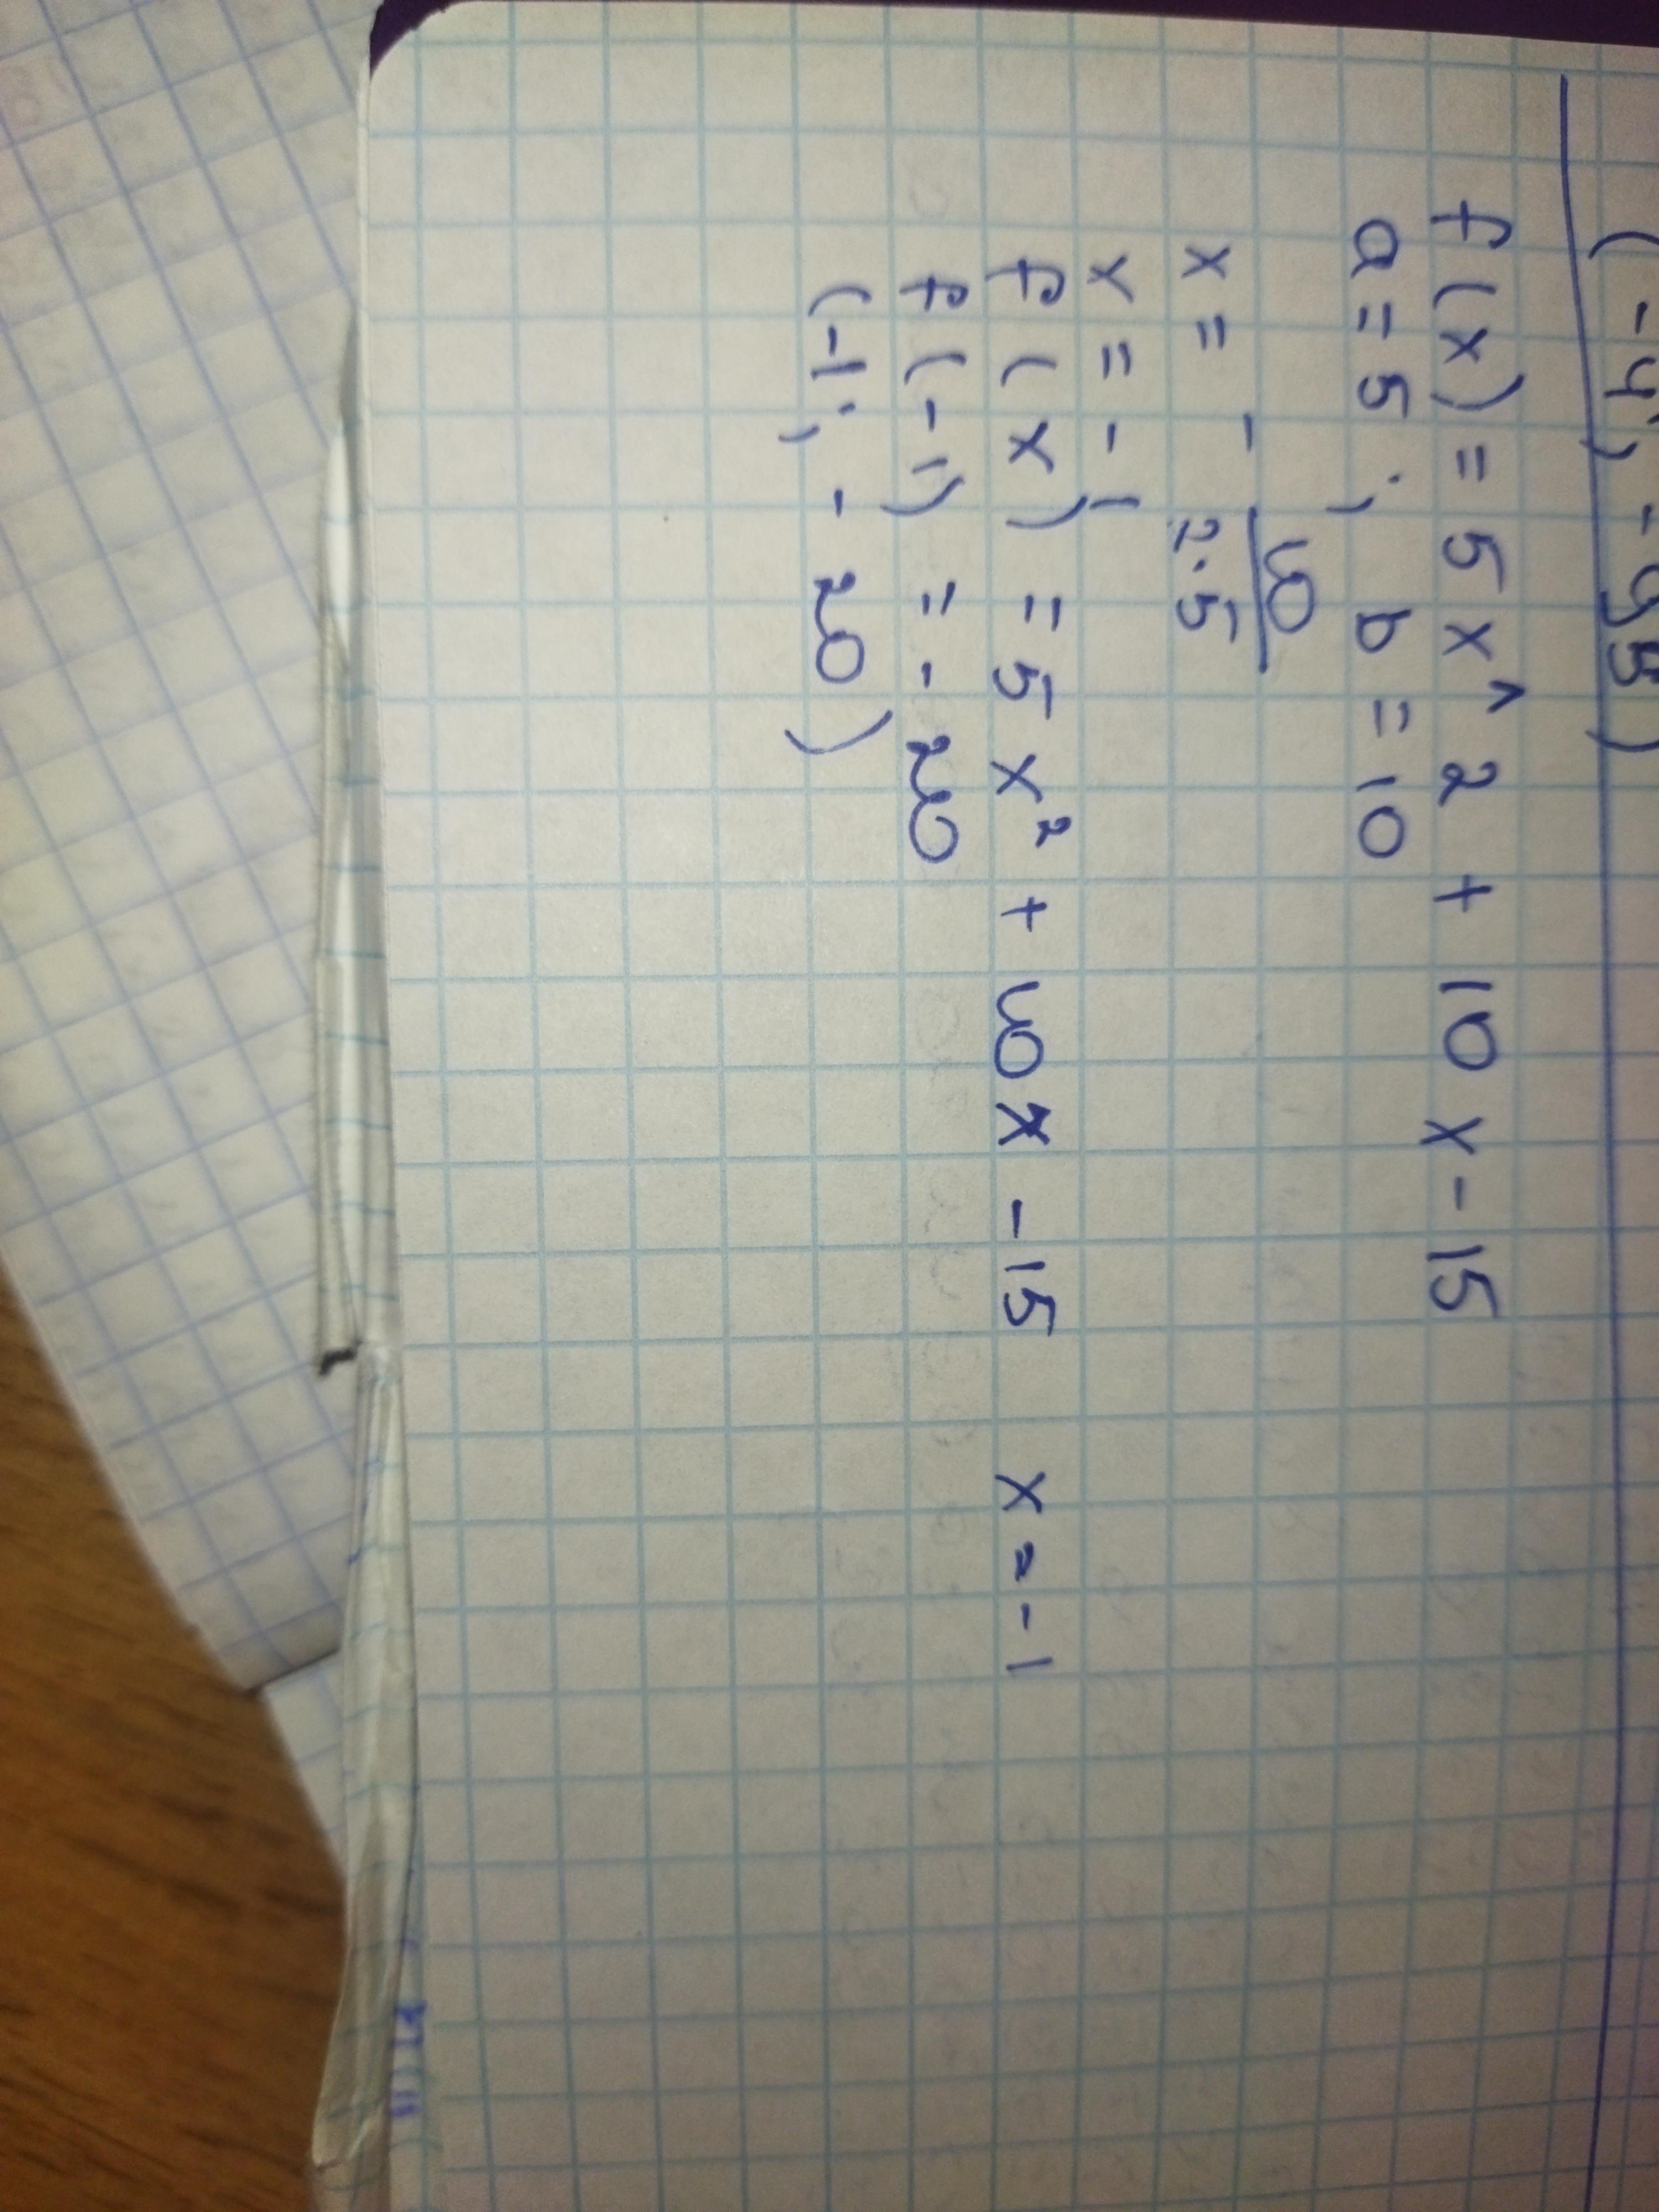 (-4; -45)
f(x) = 5x^2 + 10x - 15
a = 5; b = 10
x = - 10 / 2·5
x = -1
f(x) = 5x² + 10x - 15 x = -1
f(-1) = -20
(-1; -20)